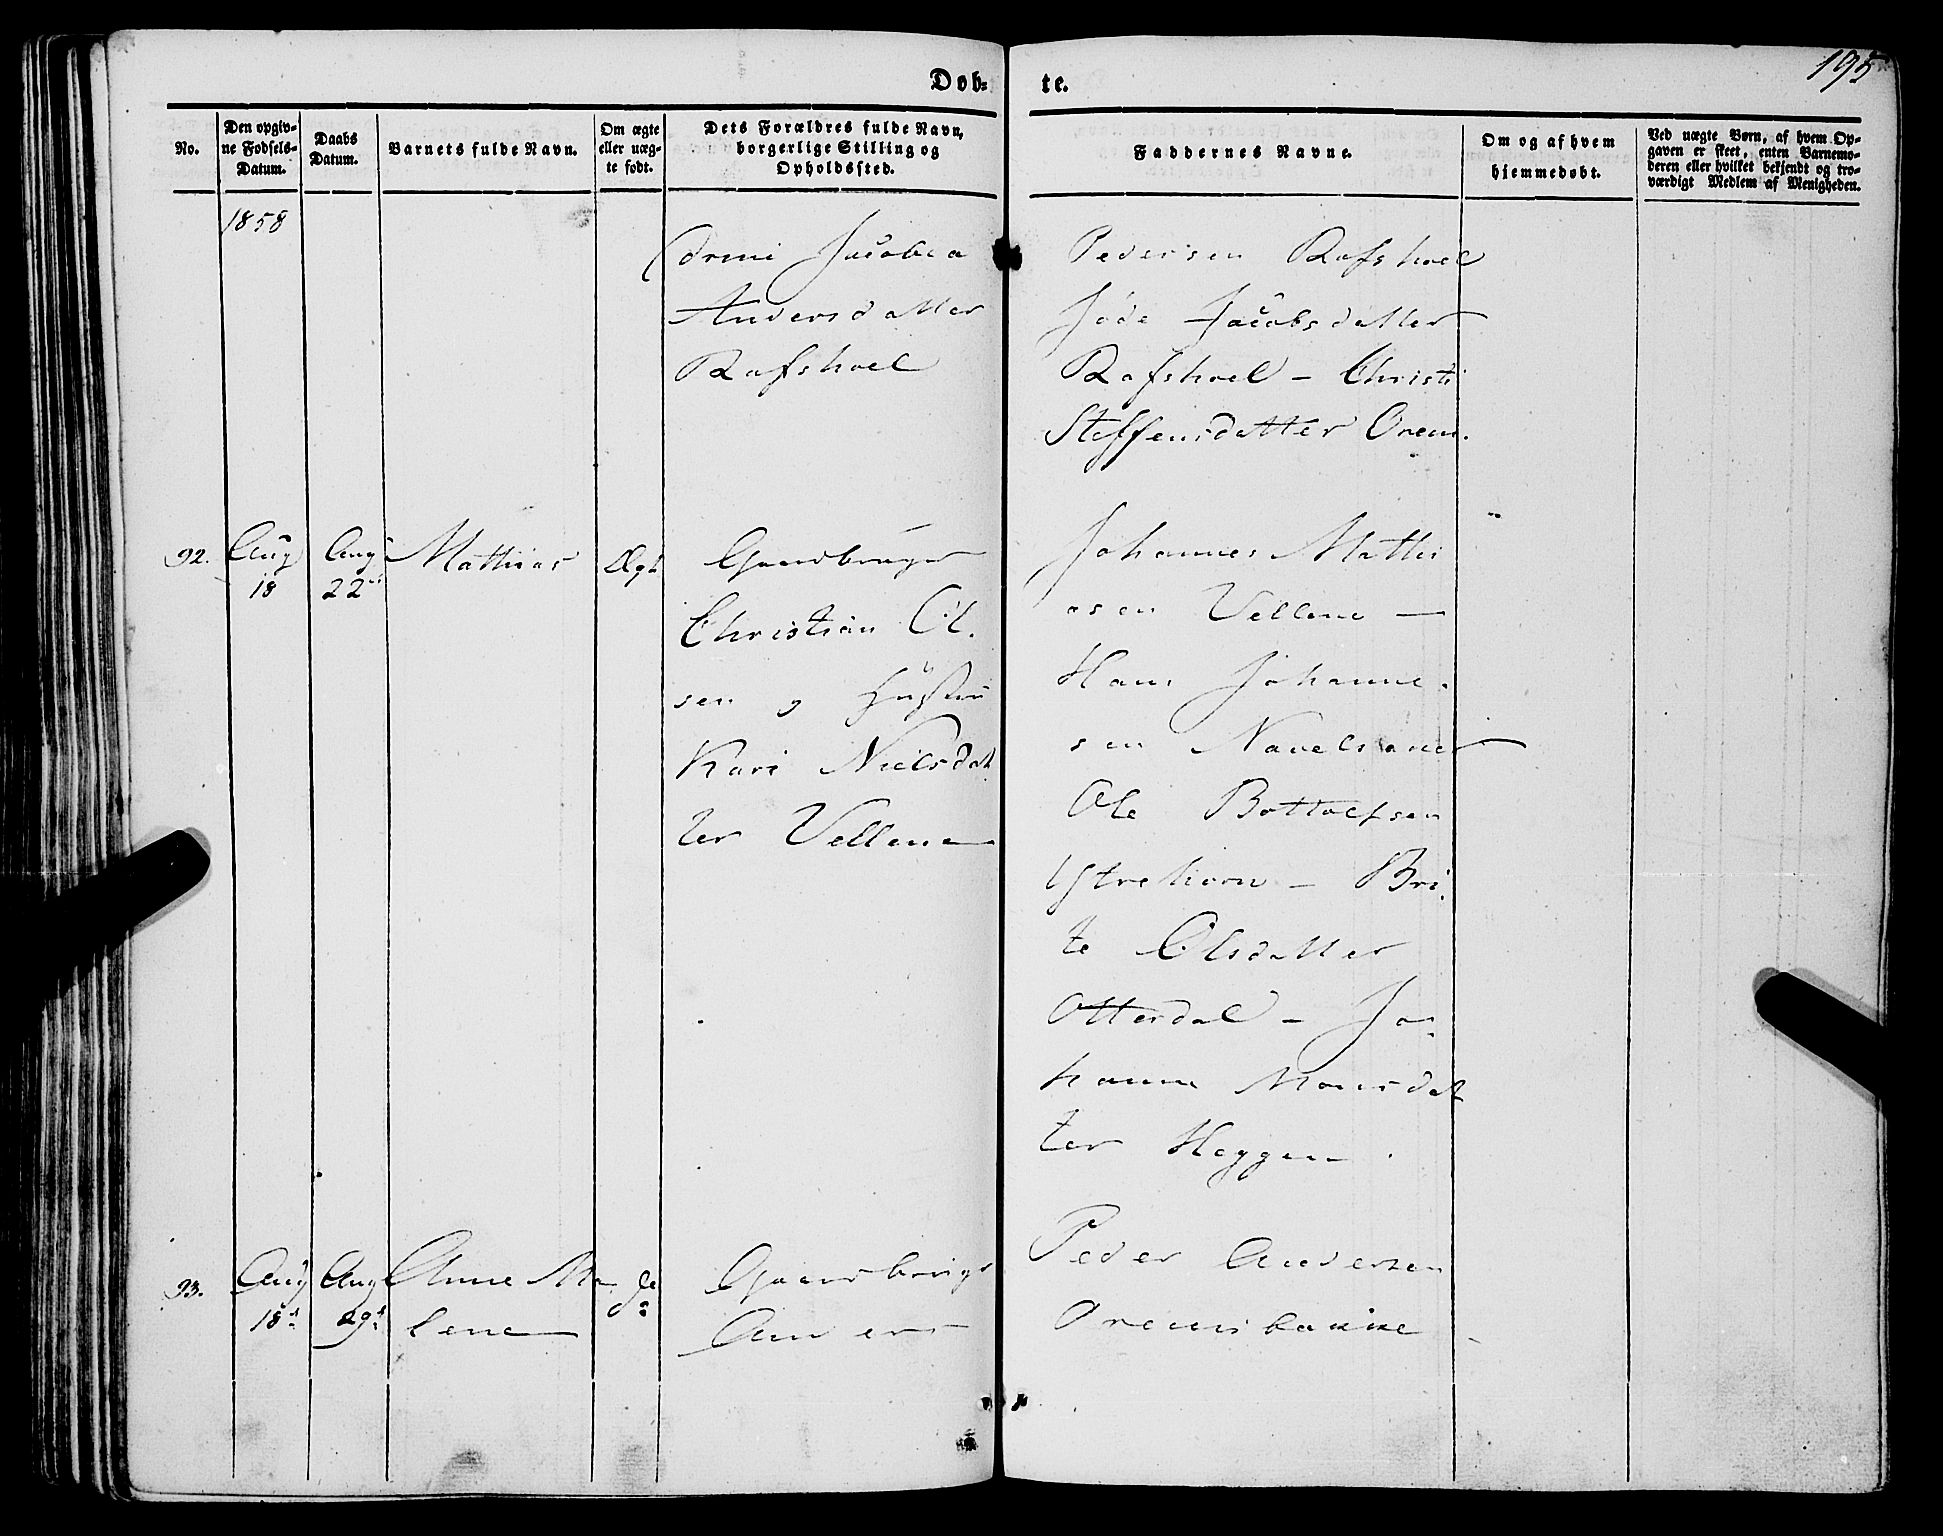 195
Døb-
te.
No.
Den opgiv-
ne Fødsels-
Datum.
Daabs
Datum.
Barnets fulde Navn.
Om ægte
eller uæg-
te født.
Dets Forældres fulde Navn,
borgerlige Stilling og
Opholdssted.
Faddernes Navne.
Om og af hvem
hjemmedøbt.
Ved uægte Børn, af hvem Op-
gaven er skeet, enten Barnemo-
deren eller hvilket bekjendt og tro-
værdigt Medlem af Menigheden.
1858
Jacobea
Andersdatter
Rafshoel
Pedersen Rafshoel
Jacobsdatter
Rafshoel - Christi
Steffensdatter Orem.
92.
Aug
18
Aug
22
Mathias
Ægt
Gaardbruger
Christian Ol.
sen og Hustru
Kari Nielsdat
ter Vellene
Johannes Mathi
asen Vellene -
Hans Johanne.
sen
Ole Bottolfsen
Ytrehorn - Bri.
te Olsdatter
Otterdal - Jo-
hanne Monsdat
ter Heggen.
93.
Aug
18
Aug
29
Anne Ma
lene
do
Gaardbrugr
Anders
Peder Andersen
Oremsbakke